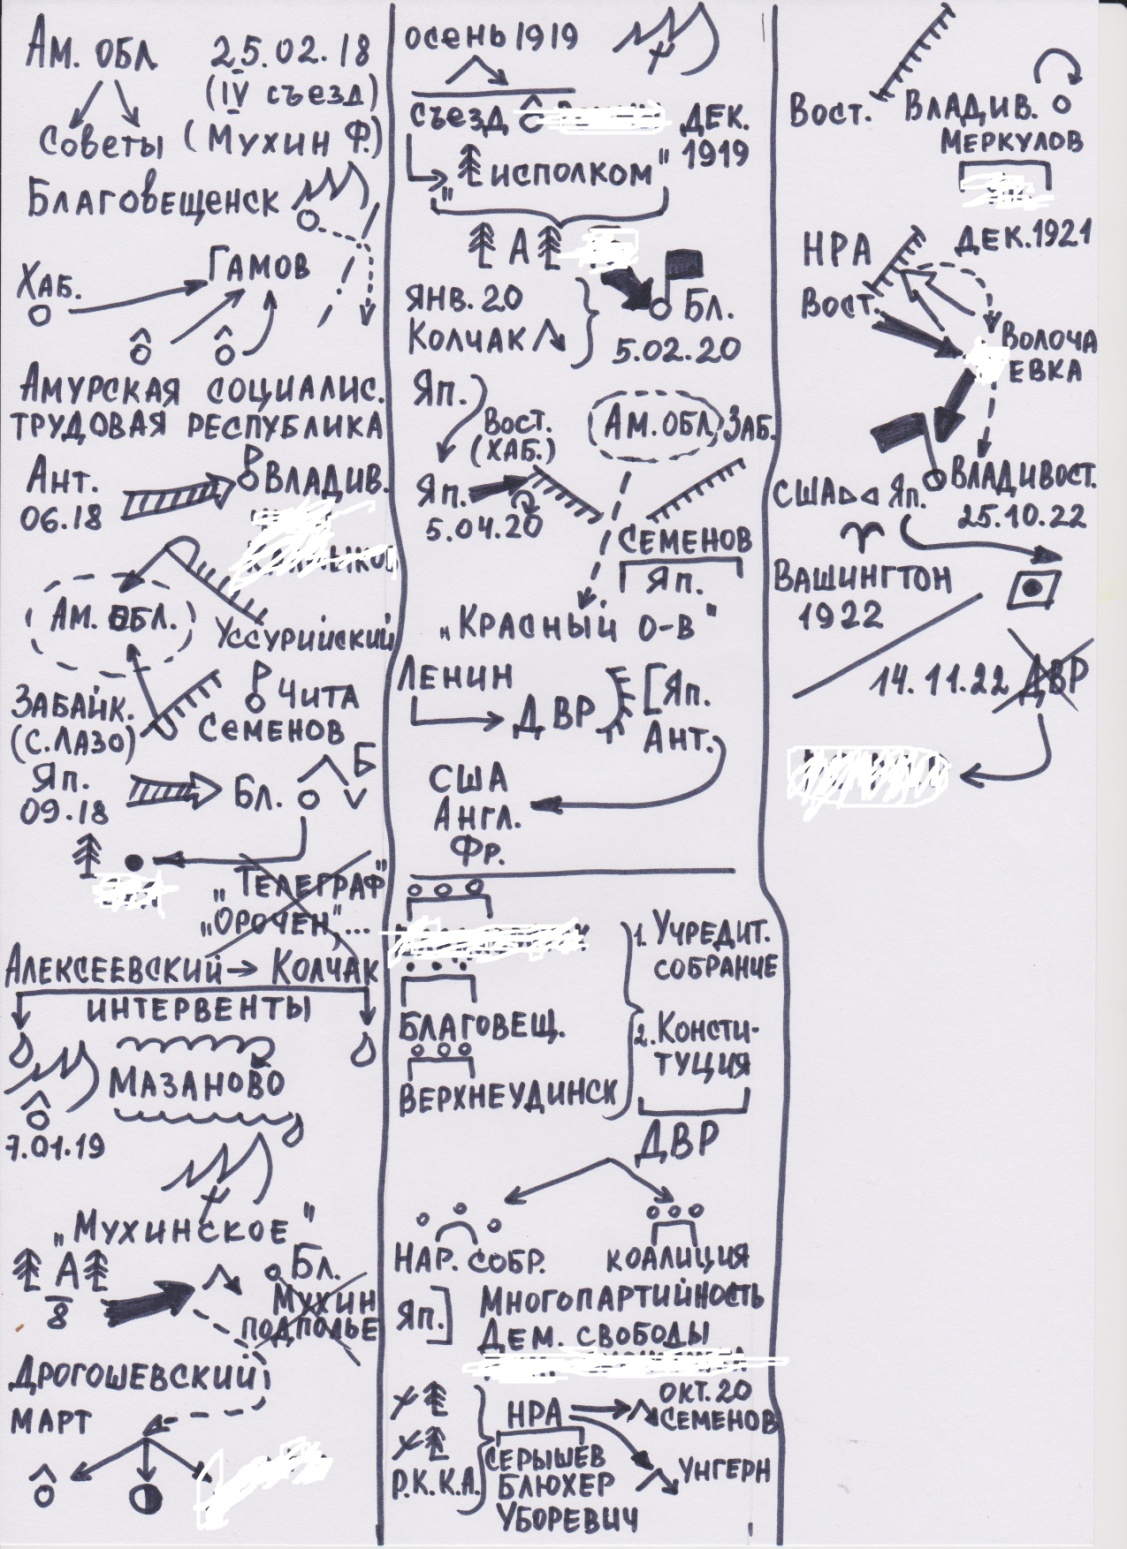 Ам. обл 25.02.18
(IV съезд)
Советы (Мухин Ф.)
Благовещенск
Хаб. Гамов
Амурская социалис.
трудовая республика
Ант. Владив.
06.18
Ам. обл.
Уссурийский
Забайк. Чита
(С. Лазо) Семенов
Яп. Бл. Б
09.18
„Телеграф"
„Орочен",...
Алексеевский → Колчак
интервенты
Мазаново
7.01.19
„Мухинское"
А Бл.
8 Мухин
подполье
Дрогошевский
март
осень 1919
съезд дек.
1919
„исполком"
А
янв. 20 Бл.
Колчак
5.02.20
Яп. Вост. Ам. обл. Заб.
(Хаб.)
Яп.
5.04.20
Семенов
Яп.
„Красный о-в"
Ленин
ДВР Яп.
Ант.
США
Англ.
Фр.
1. Учредит.
собрание
Благовещ. 2. Консти-
туция
Верхнеудинск
ДВР
Нар. собр. коалиция
Яп. Многопартийность
Дем. свободы
НРА окт. 20
Семенов
Р.К.К.А. Серышев
Блюхер Унгерн
Уборевич
Вост. Владив.
Меркулов
НРА дек. 1921
Вост. Волоча
евка
США Яп. Владивост.
25.10.22
Вашингтон
1922
14.11.22 ДВР